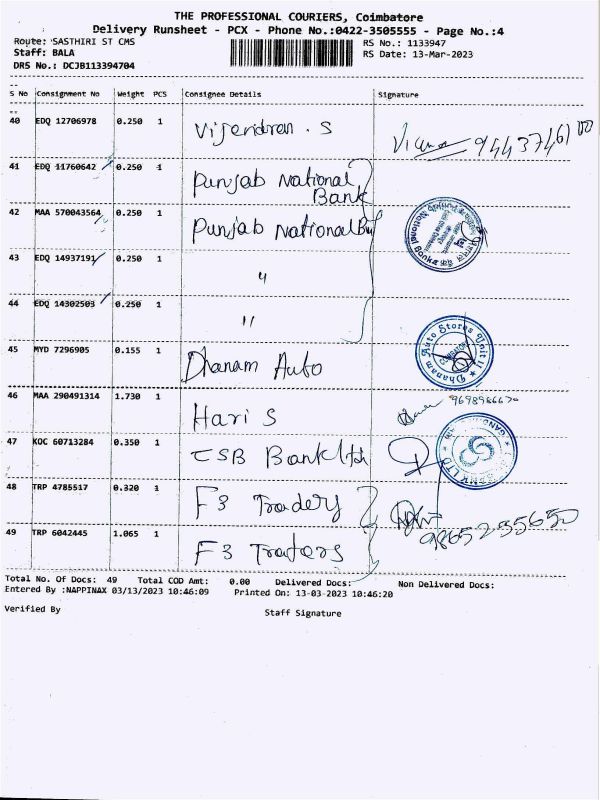 THE PROFESSIONAL COURIERS, Coimbatore
Delivery Runsheet - PCX - Phone No.:0422-3505555 - Page No.:4
Route: SASTHIRI ST CMS RS No.: 1133947
Staff: BALA RS Date: 13-Mar-2023
DRS No.: DCJB113394704
S No Consignment No Weight PCS Consignee Details Signature
40 EDQ 12706978 0.250 1 Vijendran . S
41 EDQ 11760642 0.250 1 Punjab National
Bank
42 MAA 570043564 0.250 1 Punjab National
43 EDQ 14937191 0.250 1 "
44 EDQ 14302503 0.250 1 "
45 MYD 7296905 0.155 1 Dhanam Auto
Dhanam Auto Stores Unit II
46 MAA 290491314 1.730 1 Hari S
47 KOC 60713284 0.350 1 CSB Bank ltd
48 TRP 4785517 0.320 1 F3 Traders
9865235650
49 TRP 6042445 1.065 1 F3 Traders
Total No. Of Docs: 49 Total COD Amt: 0.00 Delivered Docs: Non Delivered Docs:
Entered By :NAPPINAX 03/13/2023 10:46:09 Printed On: 13-03-2023 10:46:20
Verified By Staff Signature